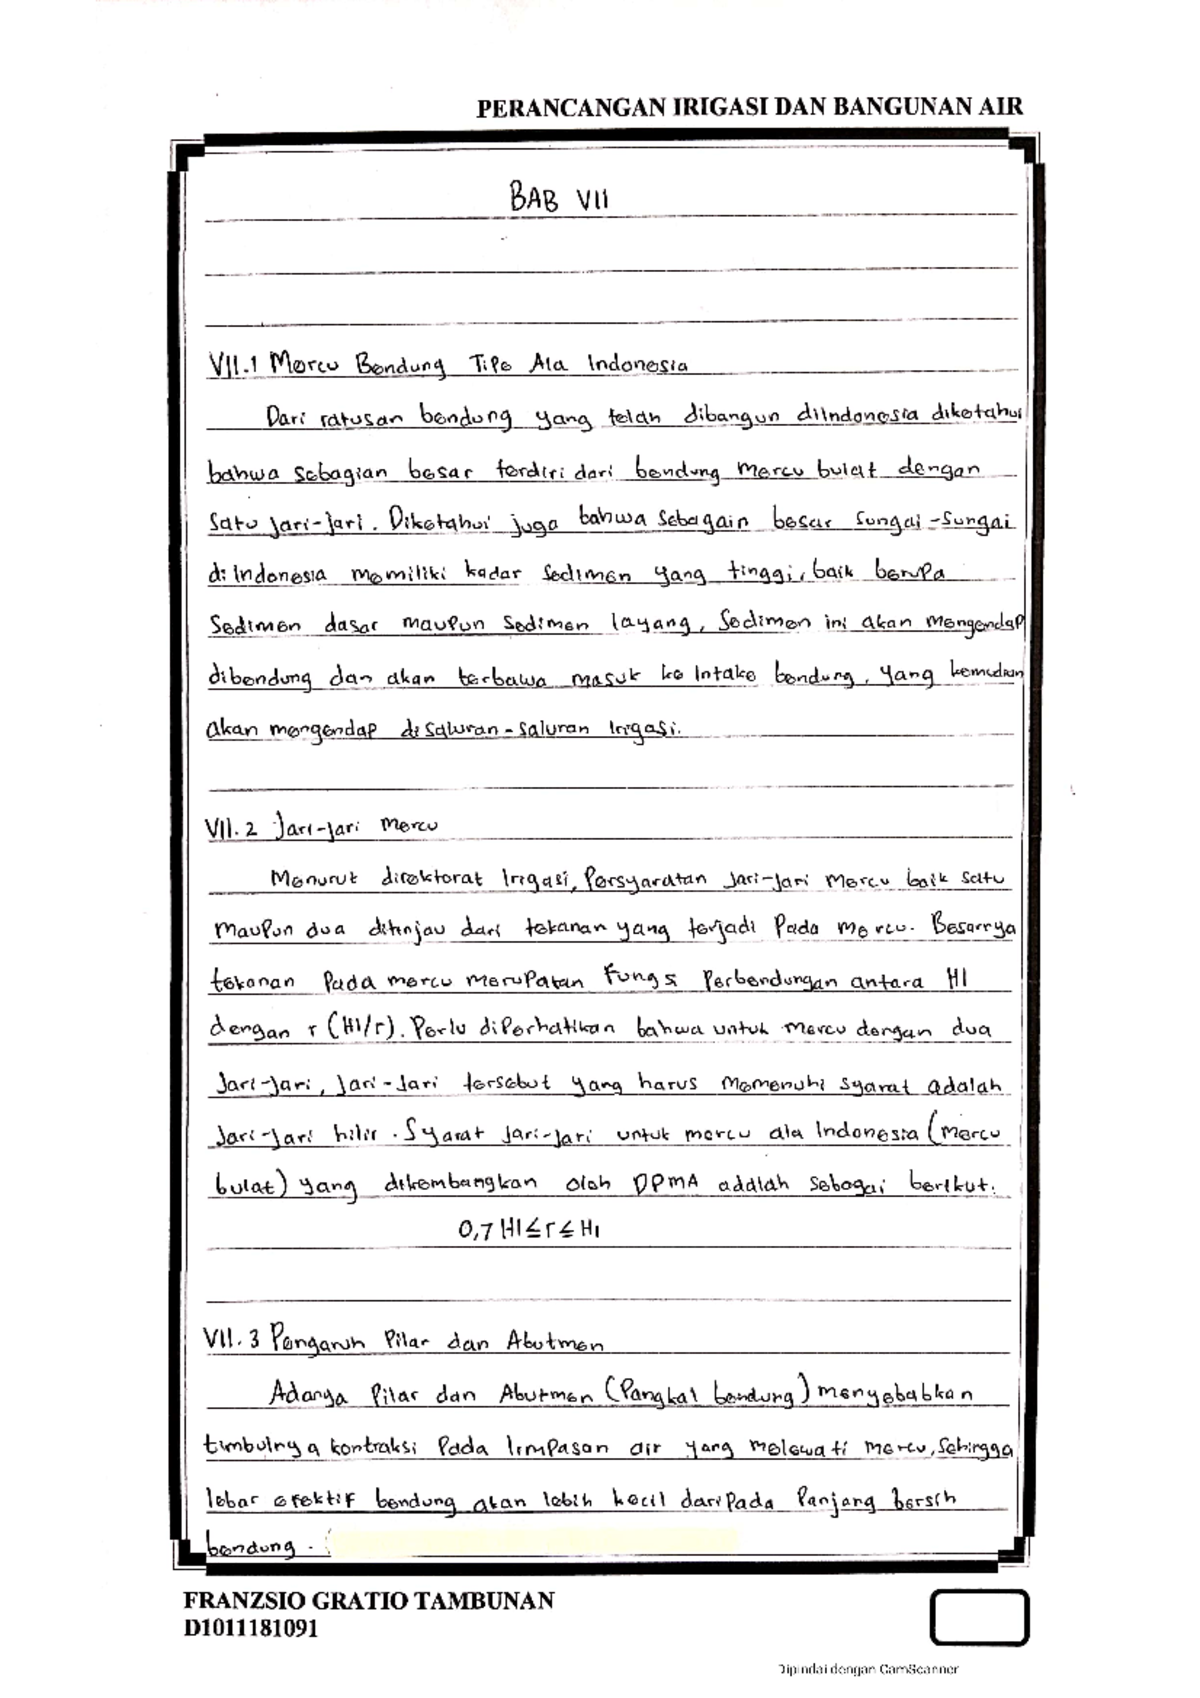 PERANCANGAN IRIGASI DAN BANGUNAN AIR
BAB VII
VII.1 Mercu Bendung Tipe Ala Indonesia
Dari ratusan bendung yang telah dibangun diIndonesia diketahui
bahwa sebagian besar terdiri dari bendung mercu bulat dengan
satu jari-jari. Diketahui juga bahwa sebagain besar sungai-sungai
di Indonesia memiliki kadar sedimen yang tinggi, baik berupa
sedimen dasar maupun sedimen layang, sedimen ini akan mengendap
dibendung dan akan terbawa masuk ke Intake bendung, yang kemudian
akan mengendap di saluran-saluran Irigasi.
VII.2 Jari-jari Mercu
Menurut direktorat Irigasi, Persyaratan Jari-Jari Mercu baik satu
maupun dua ditinjau dari tekanan yang terjadi Pada mercu. Besarnya
tekanan Pada mercu merupakan Fungsi Perbendungan antara H1
dengan r (H1/r). Perlu diPerhatikan bahwa untuk mercu dengan dua
Jari-Jari, Jari-Jari tersebut yang harus memenuhi syarat adalah
Jari-Jari hilir. Syarat Jari-Jari untuk mercu ala Indonesia (mercu
bulat) yang dikembangkan oleh DPMA adalah sebagai berikut:
0,7 H1 ≤ r ≤ H1
VII.3 Pengaruh Pilar dan Abutmen
Adanya Pilar dan Abutmen (Pangkal bendung) menyebabkan
timbulnya kontraksi Pada limpasan air yang melewati mercu, sehingga
lebar efektif bendung akan lebih kecil daripada Panjang bersih
bendung.
FRANZSIO GRATIO TAMBUNAN
D1011181091
Dipindai dengan CamScanner